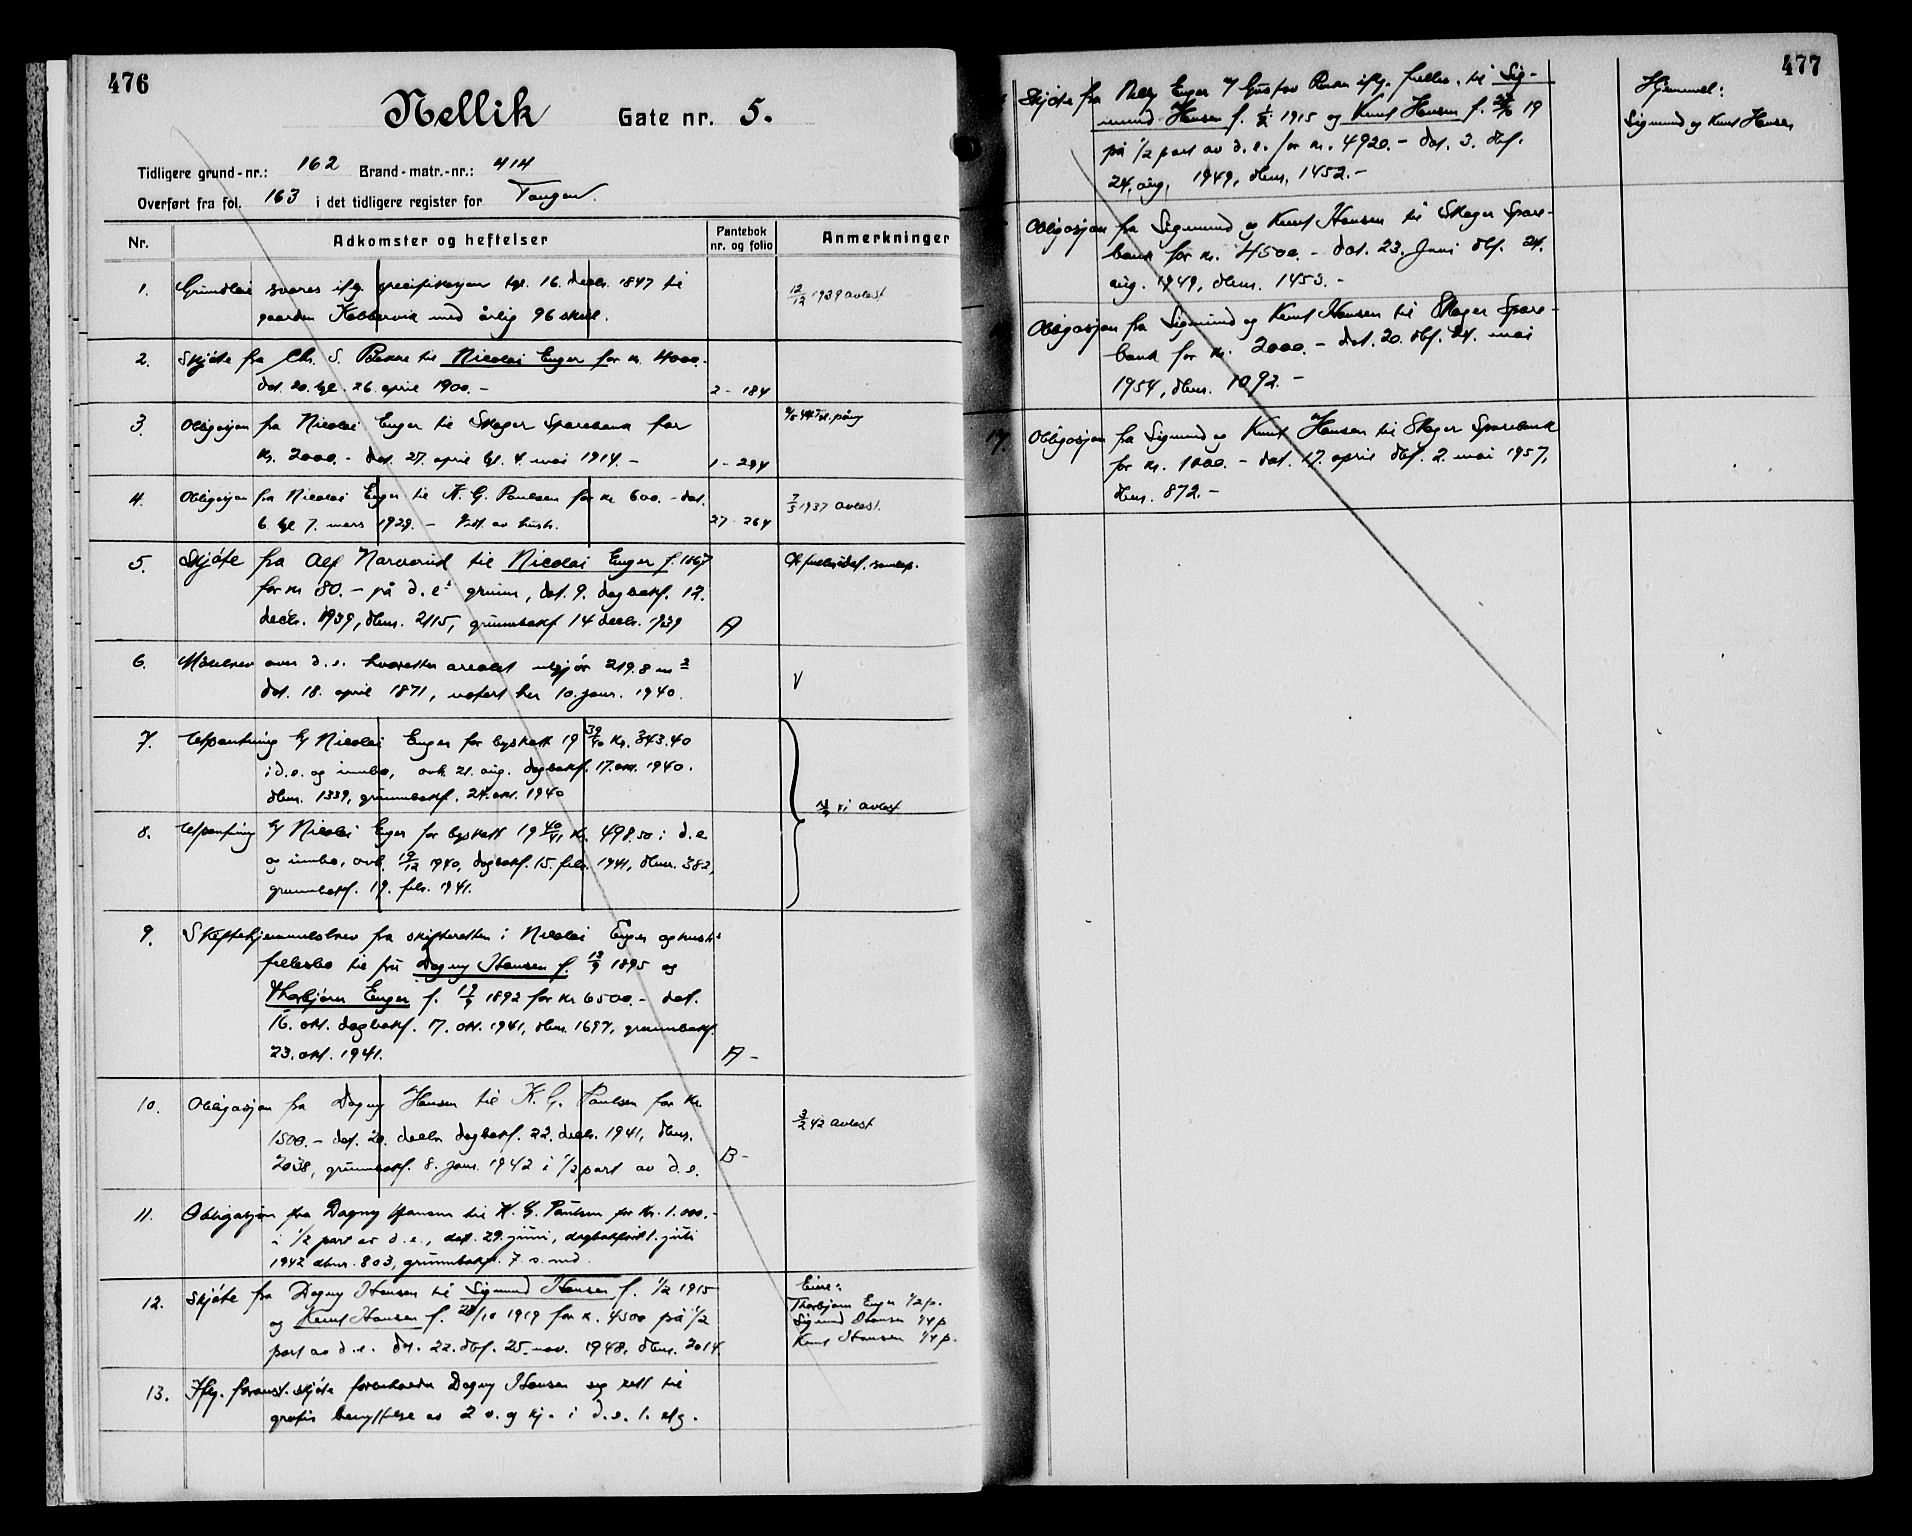 476
Nellik Gate nr. 5.
Tidligere grund-nr.: 162 Brand-matr.-nr.: 414
Overført fra fol. 163 i det tidligere register for Tangen.
Nr. Adkomster og heftelser Pantebok nr. og folio Anmerkninger
1. Grundleie svares ifg. specifikasjon tgl. 16. decbr. 1847 til 12/12 1939 avlest
gaarden Kobbervik med årlig 96 skill.
2. Skjøte fra Chr. S. Bakke til Nicolai Enger for kr. 4000.-
dat. 20. tgl. 26. april 1900.- 2 - 184
3. Obligasjon fra Nicolai Enger til Skoger Sparebank for
kr. 2000.- dat. 27. april tgl. 4. mai 1914.- 1 - 294
4. Obligasjon fra Nicolai Enger til K. G. Paulsen for kr 600.- dat. 7/5 1937 avlest.
6. tgl 7. mars 1929.- av hustr. 27 - 264
5. Skjøte fra Alf Narverud til Nicolai Enger f. 1867
for kr 80.- på d. e.s grunn, dat. 9. dagbokf. 12.
decbr. 1939, dbnr. 2115, grunnbokf 14 decbr. 1939 A
6. Målebrev over d. e. hvoretter arealet utgjør 219.8 m2
dat. 18. april 1871, notert her 10. janr. 1940. V
7. Utpantning h/ Nicolai Enger for byskatt 19 39/40 kr. 343.40
i d. e. og innbo, avh. 21. aug. dagbokf. 17. okt. 1940.
dbnr. 1339, grunnbokf. 24. okt. 1940
avlest
8. Utpantning h/ Nicolai Enger for byskatt 19 40/41 kr. 498.50 i d. e.
og innbo, avh. 19/12 1940, dagbokf. 15. febr. 1941, dbnr. 382,
grunnbokf. 19. febr. 1941.
9. Skiftehjemmelsbrev fra skifteretten i Nicolai Enger og hustrs
fellesbo til fru Dagny Hansen f. 13/9 1895 og
Thorbjørn Enger f. 19/9 1892 for kr 6500.- dat.
16. okt. dagbokf. 17. okt. 1941, dbnr. 1697, grunnbokf.
23. okt. 1941. A -
10. Obligasjon fra Dagny Hansen til K. G. Paulsen for kr.
1500.- dat. 20. decbr. dagbokf. 22. decbr. 1941, dbnr. 3/2 42 avlest
2038, grunnbokf. 8. janr. 1942 i 1/2 part av d. e. B -
11. Obligasjon fra Dagny Hansen til K. G. Paulsen for kr. 1.000.-
i 1/2 part av d. e., dat. 29. juni, dagbokført 1. juli
1942 dbnr. 803, grunnbokf. 7. s. md.
12. Skjøte fra Dagny Hansen til Sigmund Hansen f. 1/2 1915
og Knut Hansen f. 28/10 1919 for kr. 4500 på 1/2
part av d. e. dat. 22. dbf. 25. nov. 1948, dbnr. 2014.
Eiere:
Thorbjørn Enger 1/2 p.
Sigmund Hansen 1/4 p
Knut Hansen 1/4 p.
13. Ifg. foranst. skjøte forbeholder Dagny Hansen seg rett til
gratis benyttelse av 2 v. og kj. i d. e. 1. etg.
477
Skjøte fra Enger v/ Gustav ifg. fullm. til Sig-
mund Hansen f. 1/2 1915 og Knut Hansen f. 28/10 19
på 1/2 part av d. e. for kr. 4920.- dat. 3. dbf.
24. aug. 1949, dbnr. 1452.-
Hjemmel:
Sigmund og Knut Hansen
Obligasjon fra Sigmund og Knut Hansen til Skoger Spare-
bank for kr. 4500.- dat. 23. juni dbf. 24.
aug. 1949, dbnr. 1453.-
Obligasjon fra Sigmund og Knut Hansen til Skoger Spare-
bank for kr. 2000.- dat. 20. dbf. 24. mai
1954, dbnr. 1092.-
17. Obligasjon fra Sigmund og Knut Hansen til Skoger Sparebank
for kr. 1000.- dat. 17. april dbf. 2. mai 1957,
dbnr. 872.-